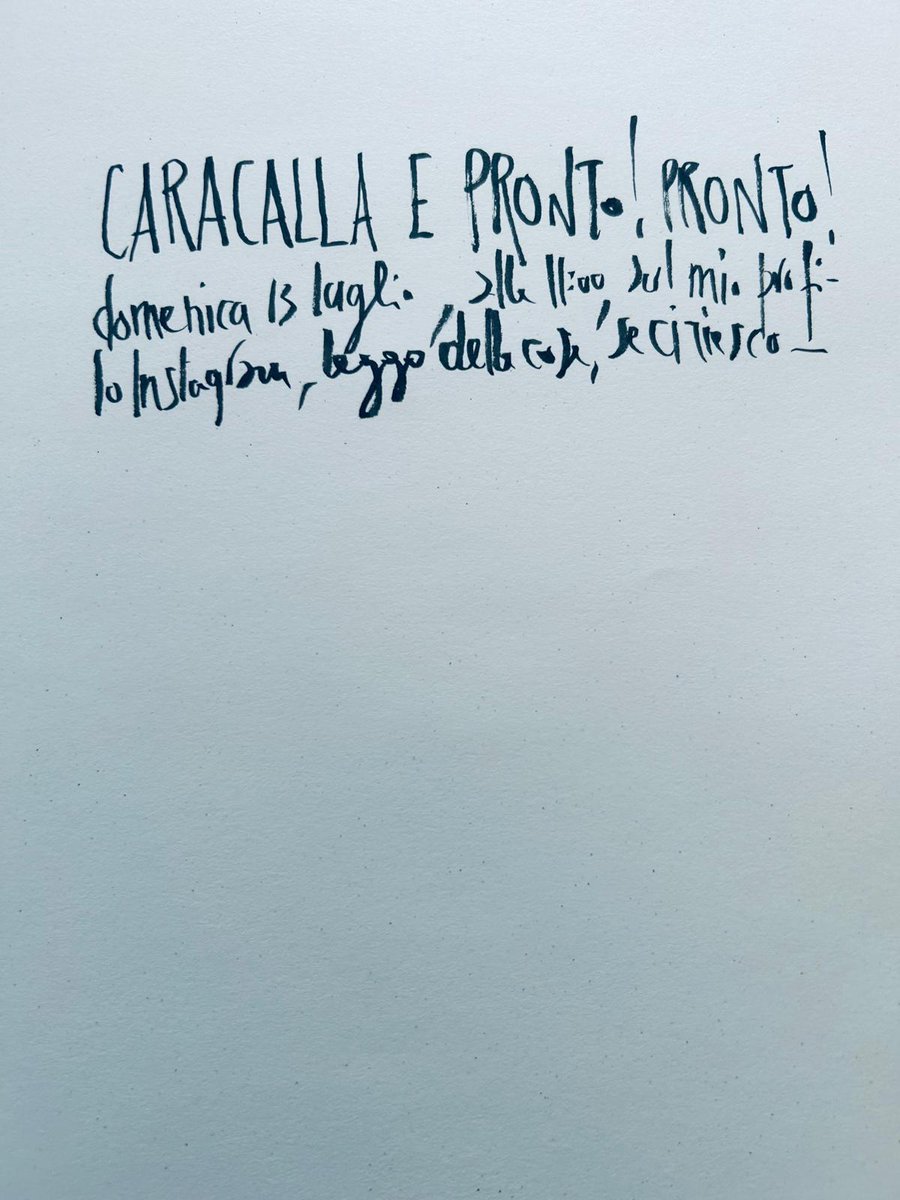 CARACALLA E PRONTO! PRONTO!
domenica 13 luglio, alle 11:00 sul mio profi-
lo Instagram, leggo "delle cose," se ci riesco —